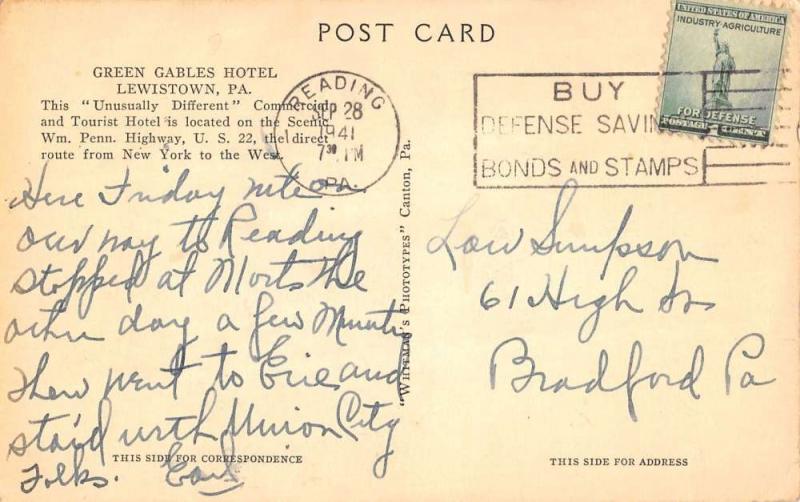 POST CARD
GREEN GABLES HOTEL
LEWISTOWN, PA.
This "Unusually Different" Commercial
and Tourist Hotel is located on the Scenic
Wm. Penn. Highway, U. S. 22, the direct
route from New York to the West.
READING
SEP 28
1941
7 30 PM
PA.
BUY
DEFENSE SAVINGS
BONDS AND STAMPS
UNITED STATES OF AMERICA
INDUSTRY-AGRICULTURE
FOR DEFENSE
POSTAGE 1 CENT
Here Friday nite on
our way to Reading
stopped at Morts the
other day a few Minutes
then went to Erie and
stay'd with Union City
Folks. Earl
"WHITMAN'S PHOTOTYPES" Canton, Pa.
Low Simpson
61 High St
Bradford Pa
THIS SIDE FOR CORRESPONDENCE
THIS SIDE FOR ADDRESS